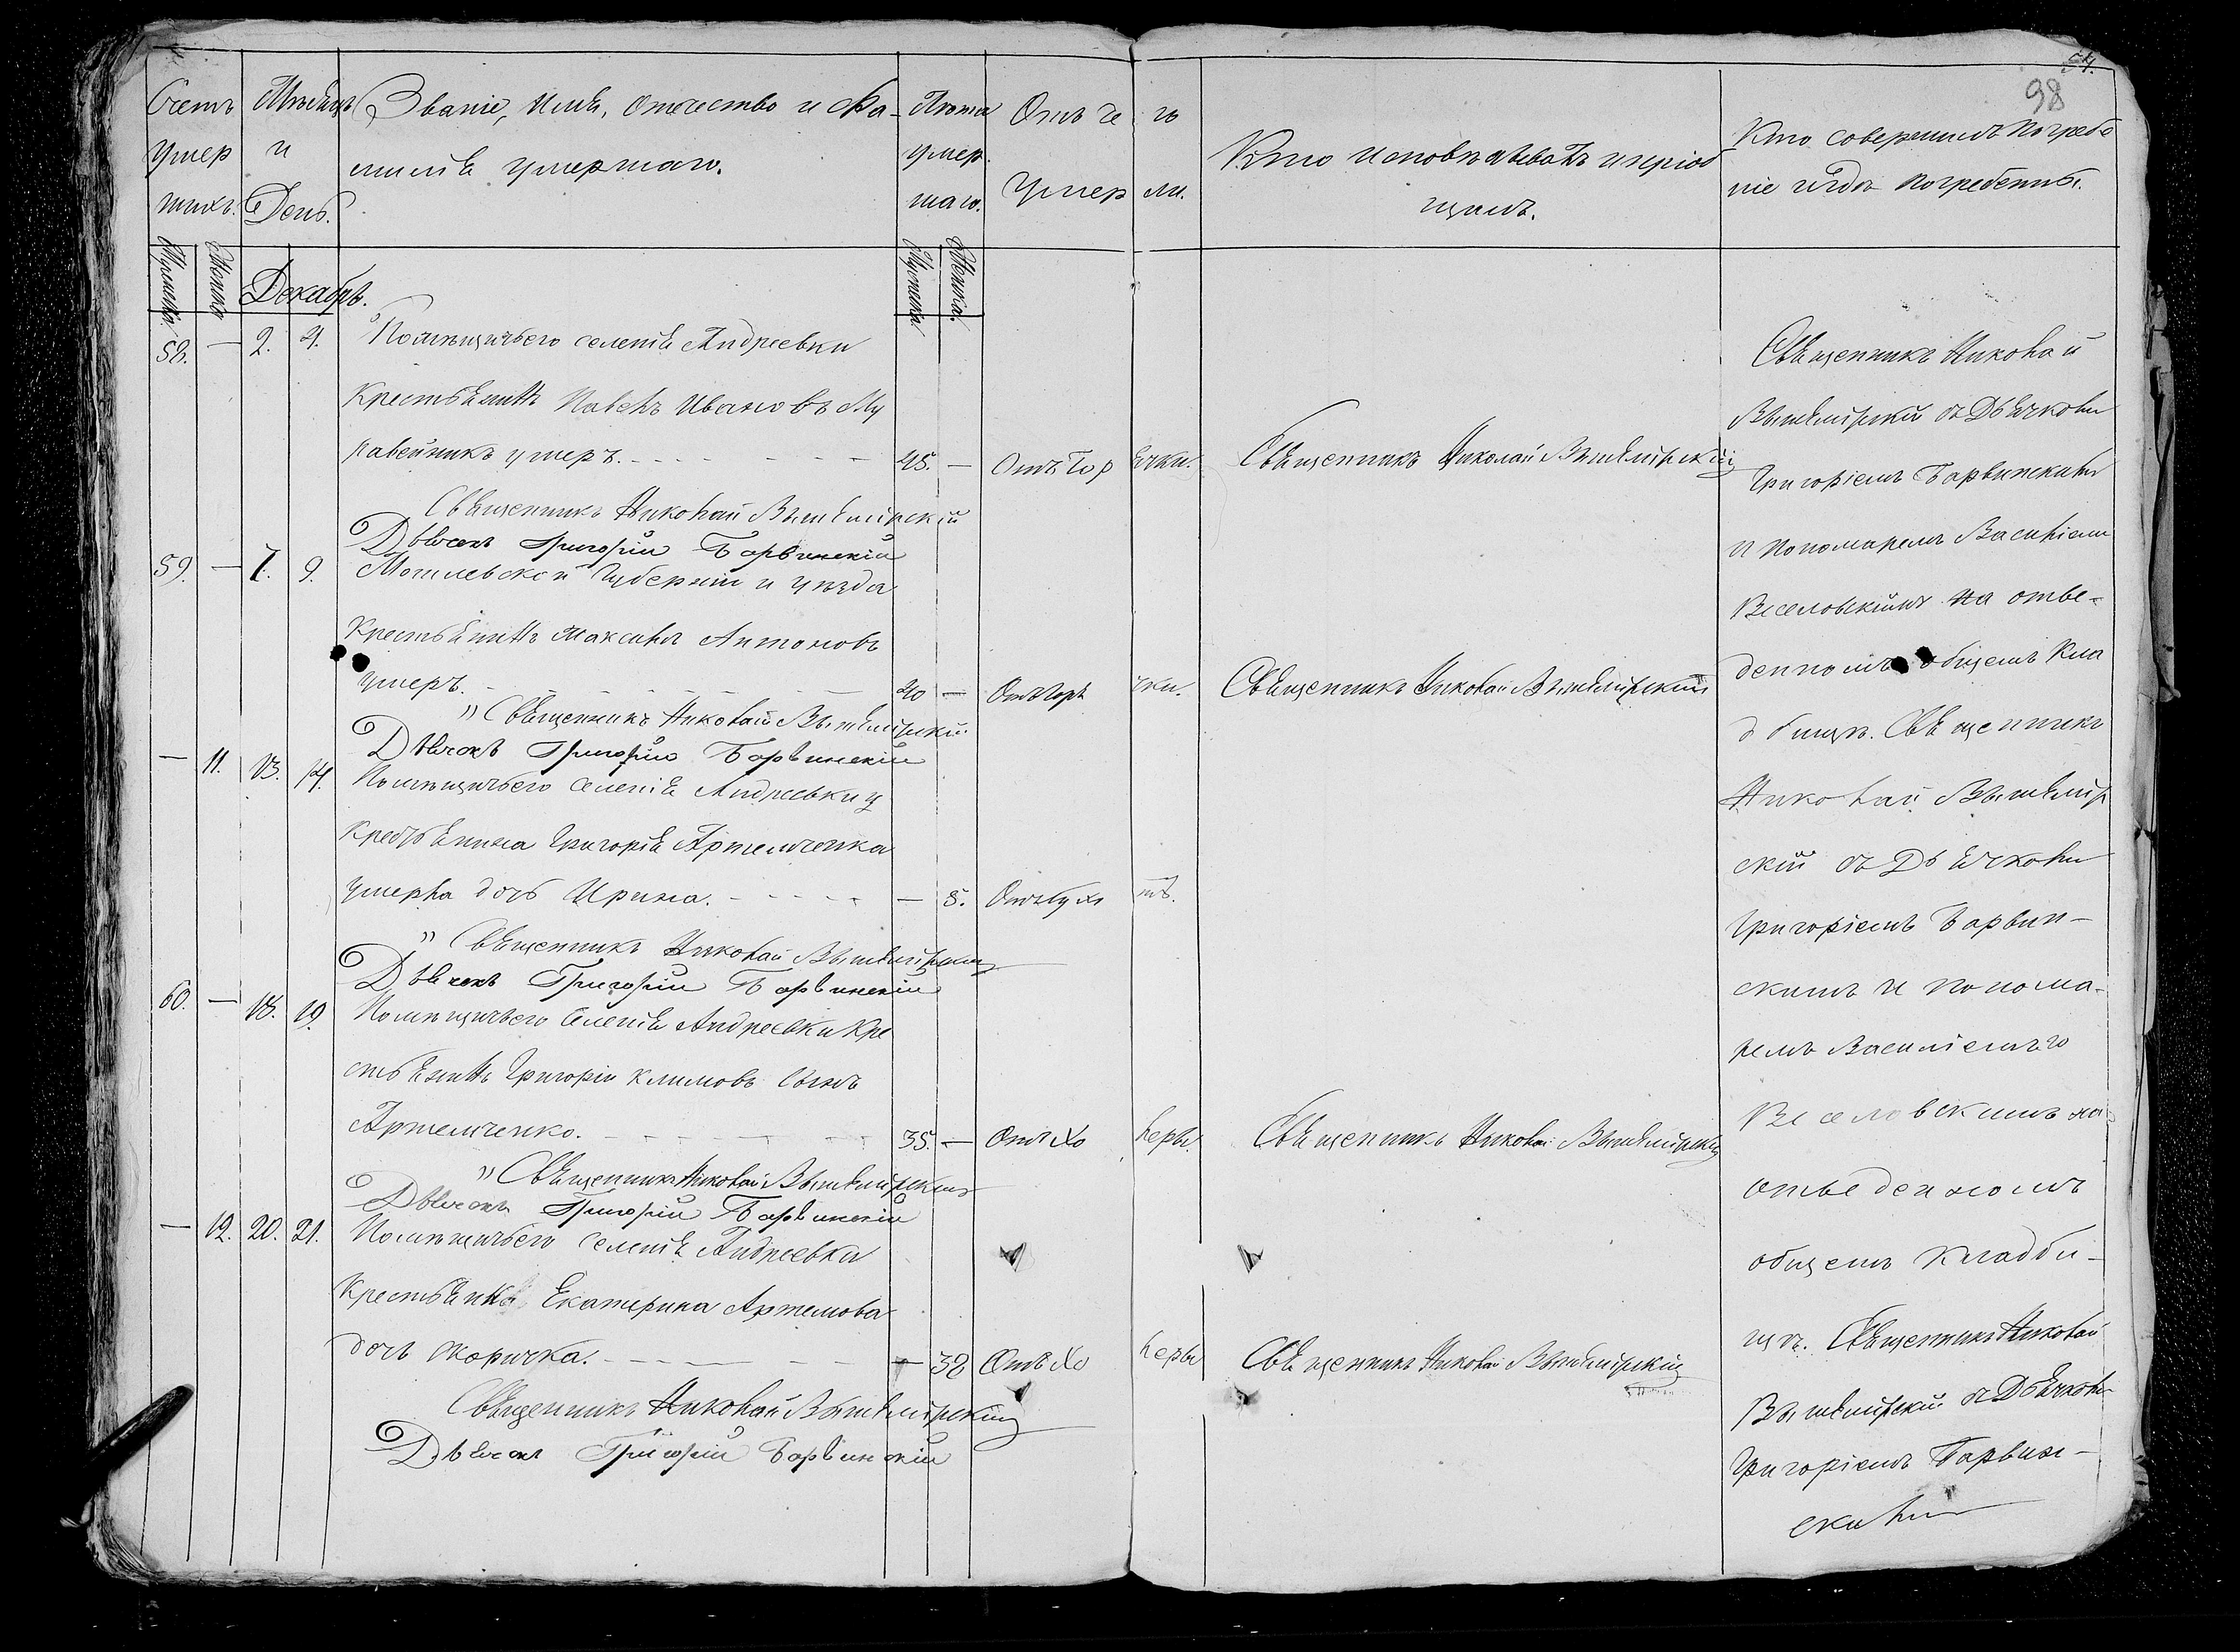 54.
98
Счетъ умер шихъ.
Мѣсяцъ и День.
Званіе, Имя, Отчество и Фа-
милія умершаго.
Лѣта умер. шаго.
Отъ че го
Умер ли.
Кто исповѣдывалъ и пріоб
щалъ.
Кто совершилъ погребе
ніе и гдѣ погребены.
Мужеска. Женска
Декабрь.
Мужеска Женска.
58. — 2. 4. Помѣщичьего селенія Андреевки
Крестьянинъ Павелъ Ивановъ Му
равейникъ умеръ. 45. — Отъ Гор ячки. Священникъ Николай Вышемірскій
Священникъ Николай Вышемірскій
Дьячекъ Григорій Барвинскій
59. — 7. 9. Могилевской Губерніи и уѣзда
Крестьянинъ Максимъ Антоновъ
умеръ. 40 — Отъ горя чки. Священникъ Николай Вышемірскій
Священникъ Николай Вышемірскій
Дьячекъ Григорій Барвинскій
— 11. 13. 14. Помѣщичьего селенія Андреевки у
Крестьянина Григорія Артемченка
умерла дочь Ирина. — 5. Отъ сух ть.
Священникъ Николай Вышемірскій
Дьячекъ Григорій Барвинскій
60. — 18. 19. Помѣщичьего селенія Андреевки Кре
стьянинъ Григорій Климовъ сынъ
Артемченко. 35. — Отъ Хо леры. Священникъ Николай Вышемірскій
Священникъ Николай Вышемірскій
Дьячекъ Григорій Барвинскій
— 12. 20. 21. Помѣщичьего селенія Андреевки
Крестьянка Екатерина Артемова
дочь Скоричка. — 38 Отъ Хо леры Священникъ Николай Вышемірскій
Священникъ Николай Вышемірскій
Дьячекъ Григорій Барвинскій
Священникъ Николай
Вышемірскій съ Дьячкомъ
Григоріемъ Барвинскимъ
и Пономаремъ Василіемъ
Веселовскимъ на отве-
денномъ общемъ Кла
дбищѣ. Священникъ
Николай Вышемір
скій съ Дьячкомъ
Григоріемъ Барвин-
скимъ и понома-
ремъ Василіемъ
Веселовскимъ на
отведенномъ
общемъ кладби-
щѣ. Священникъ Николай
Вышемірскій съ Дьячкомъ
Григоріемъ Барвин-
скимъ